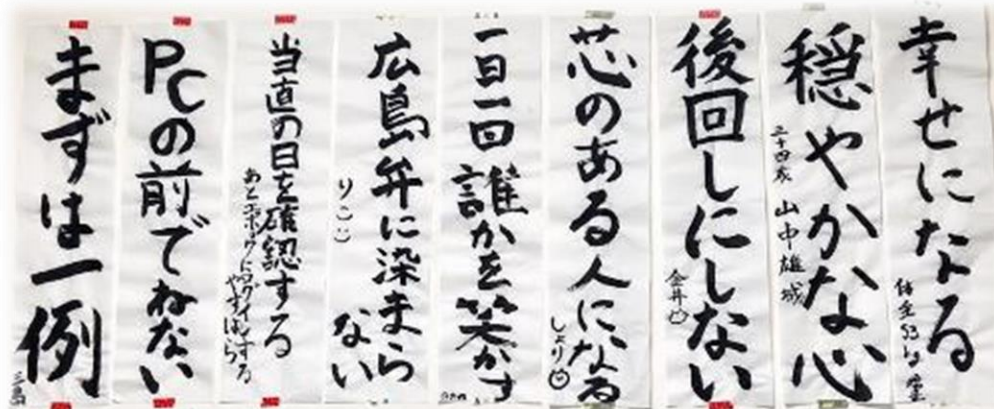 幸せになる
穏やかな心
三十四歳 山中雄城
後回しにしない
金井
芯のある人になる
しより
一日一回誰かを笑かす
広島弁に染まらない
りこ
当直の日を確認する
あと
PCの前でねない
まずは一例
三島